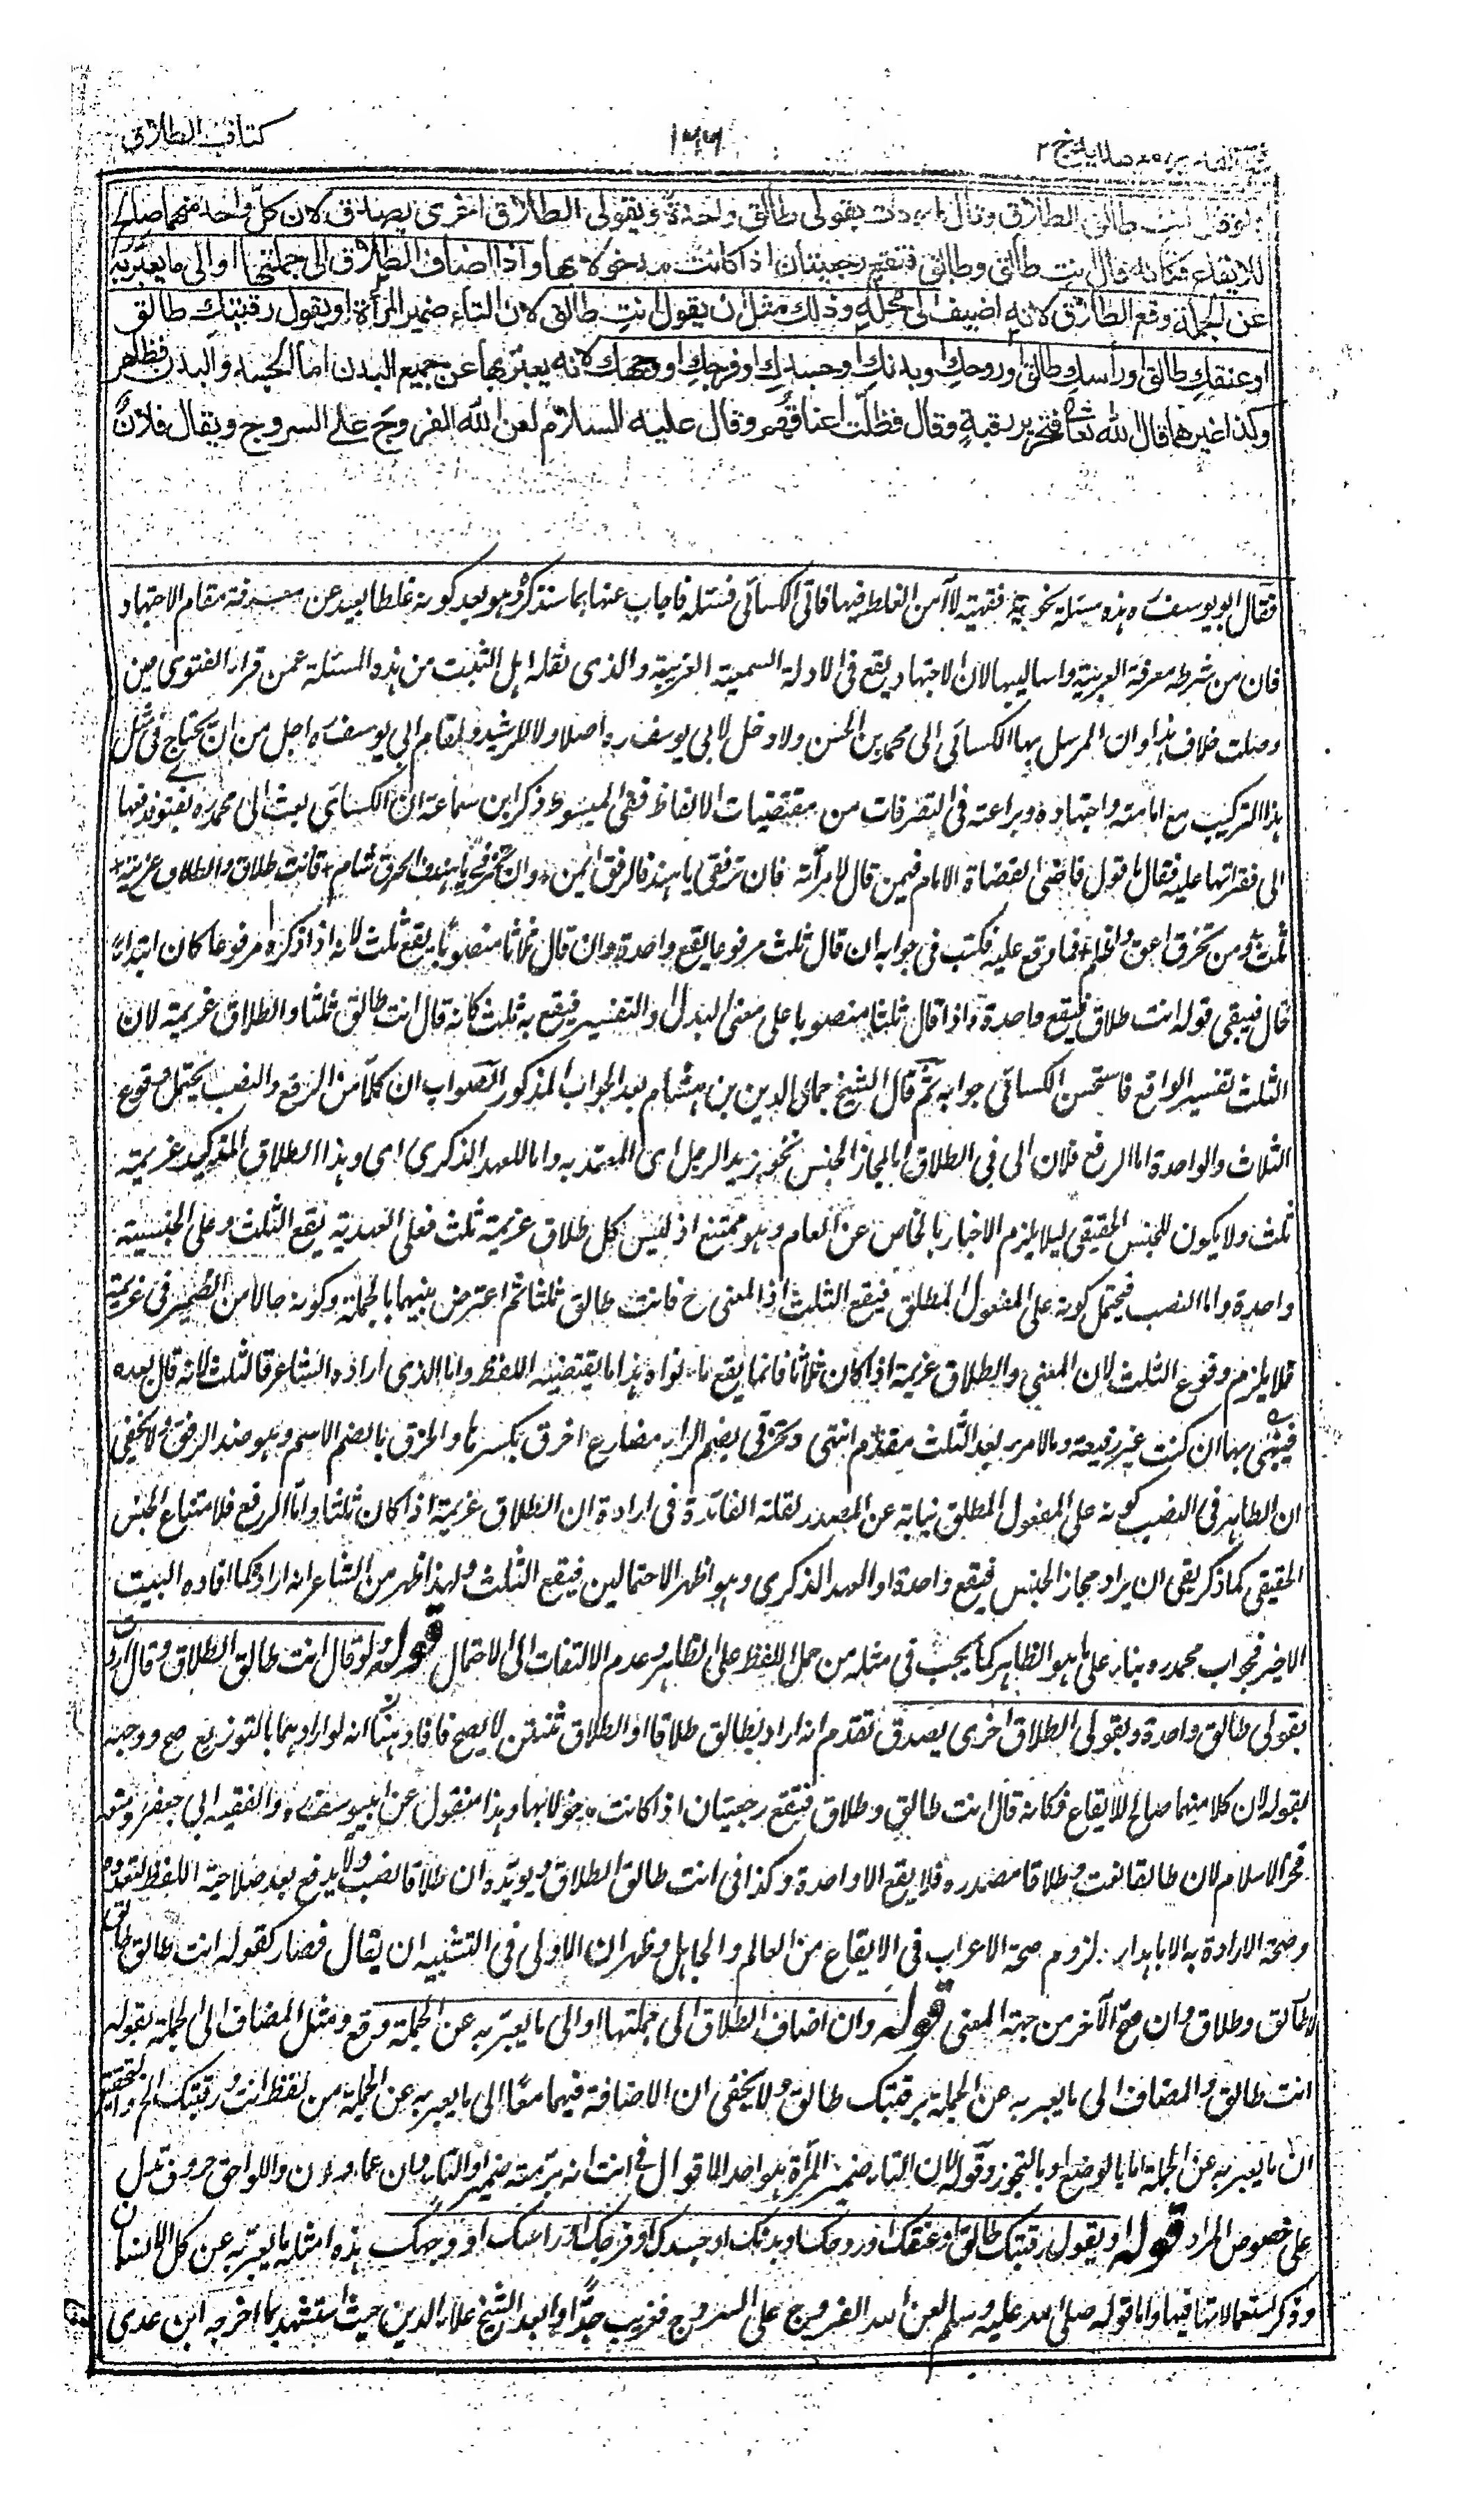 كتاب الطلاق
١٦٦
ج ٢
انت طالق الطلاق وقال اردت بقولى طالق واحدة وبقولى الطلاق اخرى يصدق لان كل واحد منهما صالح
للايقاع فكانه قال انت طالق وطالق فتقع رجعيتان اذا كانت مدخولا بها واذا اضاف الطلاق الى جملتها او الى ما يعبر به
عن الجملة وقع الطلاق لانه اضيف الى محله وذلك مثل ان يقول انتِ طالق لان التاء ضمير المرأة او يقول رقبتكِ طالق
او عنقكِ طالق او رأسكِ طالق او روحكِ او بدنكِ او جسدكِ او فرجكِ او وجهكِ لانه يعبر بها عن جميع البدن اما الجسد والبدن فظاهر
وكذا غيرهما قال الله تعالى فتحرير رقبةٍ وقال فظلّت اعناقهم وقال عليه السلام لعن الله الفروج على السروج ويقال فلانٌ
فقال ابو يوسف ره هذه مسئلة نحوية فقهية لا آمن الغلط فيها فاتى الكسائى فسئله فاجاب عنها بما سنذكره وهو بعد كونه غلطا بعيد عن معرفة مقام الاجتهاد
فان من شرطه معرفة العربية واساليبها لان الاجتهاد يقع فى الادلة السمعية العربية والذى نقله اهل التثبت من هذه المسئلة عمن قرأ الفتوى حين
وصلت خلاف هذا وان المرسل بها الكسائى الى محمد بن الحسن ولا دخل لابى يوسف ره اصلا ولا للرشيد ولمقام ابى يوسف ره اجل من ان يحتاج فى مثل
هذا التركيب مع امامته واجتهاده وبراعته فى التصرفات من مقتضيات الالفاظ ففى المبسوط ذكر ابن سماعة ان الكسائى بعث الى محمد ره بفتوى فدفعها
الى فقرأتها عليه فقال ما قول قاضى القضاة الامام فيمن قال لامرأته فان ترفقى يا هند فالرفق ايمن * وان تخرقى يا هند فالخرق اشأم * فانت طلاق والطلاق عزيمة *
ثلث ومن يخرق اعق واظلم * فما وقع عليه فكتب فى جوابه ان قال ثلث مرفوعا يقع واحدة وان قال ثلاثا منصوبا يقع ثلث لانه اذا ذكره مرفوعا كان ابتداءً
قال فيبقى قوله انت طلاق فيقع واحدة واذا قال ثلثا منصوبا على معنى البدل او التفسير فيقع به ثلث كانه قال انت طالق ثلثا والطلاق عزيمة لان
الثلث تفسير الواقع فاستحسن الكسائى جوابه ثم قال الشيخ جمال الدين بن هشام بعد الجواب المذكور الصواب ان كلا من الرفع والنصب يحتمل وقوع
الثلاث والواحدة اما الرفع فلان ال فى الطلاق اما لمجاز الجنس نحو زيد الرجل اى المعتمد به واما للعهد الذكرى اى وهذا الطلاق المذكور عزيمة
ثلث ولا يكون للجنس الحقيقى ليلا يلزم الاخبار بالخاص عن العام وهو ممتنع اذ ليس كل طلاق عزيمة ثلث فعلى العهدية يقع الثلث وعلى الجنسية
واحدة واما النصب فيحتمل كونه على المفعول المطلق فيقع الثلث اذ المعنى ح فانت طالق ثلثا ثم اعترض بينهما بالجملة وكونه حالا من الضمير فى عزيمة
فلا يلزم وقوع الثلث لان المعنى والطلاق عزيمة اذا كان ثلاثا فانما يقع ما نواه هذا ما يقتضيه اللفظ واما الذى اراده الشاعر فالثلث لانه قال بعده
فبينى بها ان كنت غير رفيقة وما لامرء بعد الثلث مقدم انتهى وتخرقى بضم الراء مضارع اخرق بكسرها والخرق بالضم الاسم وهو ضد الرفق ولا يخفى
ان الظاهر فى النصب كونه على المفعول المطلق نيابة عن المصدر لقلة الفائدة فى ارادة ان الطلاق عزيمة اذا كان ثلثا واما الرفع فلامتناع الجنس
الحقيقى كما ذكر بقى ان يراد مجاز الجنس فيقع واحدة او العهد الذكرى وهو اظهر الاحتمالين فيقع الثلث ولهذا ظهر من الشاعر انه اراده كما افاده البيت
الاخير فجواب محمد ره بناء على ما هو الظاهر كما يجب فى مثله من حمل اللفظ على الظاهر وعدم الالتفات الى الاحتمال قوله ولو قال انت طالق الطلاق وقال اردت
بقولى طالق واحدة وبقولى الطلاق اخرى يصدق تقدم انه اراد بطالق طلاقا او الطلاق ثنتين لا يصح فافاد هنا انه لو اراد هما بالتوزيع صح ووجهه
بقوله لان كلا منهما صالح للايقاع فكانه قال انت طالق وطلاق فتقع رجعيتان اذا كانت مدخولا بها وهذا منقول عن ابى يوسف ره والفقيه ابى جعفر ومنعه
فخر الاسلام لان طالقا نعت وطلاقا مصدره فلا يقع الا واحدة وكذا فى انت طالق الطلاق ويؤيده ان طلاقا نصب ولا يدفع بعد صلاحية اللفظ لتعدده
وصحة الارادة به الا باهدار لزوم صحة الاعراب فى الايقاع من العالم والجاهل وظهر ان الاولى فى التشبيه ان يقال فصار كقوله انت طالق طالق
لا طالق وطلاق وان صح الآخر من جهة المعنى قوله وان اضاف الطلاق الى جملتها او الى ما يعبر به عن الجملة وقع ومثل المضاف الى الجملة بقوله
انت طالق والمضاف الى ما يعبر به عن الجملة برقبتك طالق ولا يخفى ان الاضافة فيهما معا الى ما يعبر به عن الجملة من لفظ انت ورقبتك الخ والتحقيق
ان ما يعبر به عن الجملة اما بالوضع او بالتجوز وقوله لان التاء ضمير المرأة هو احد الاقوال فى انت انه برمته ضمير او التاء وان عماد او ان واللواحق حروف تدل
على خصوص المراد قوله او يقول رقبتك طالق او عنقك او روحك او بدنك او جسدك او فرجك او رأسك او وجهك هذه امثلة ما يعبر به عن كل الانسان
وذكر استعمالاتها فيها واما قوله صلى الله عليه وسلم لعن الله الفروج على السروج فغريب جدا وابعد الشيخ علاء الدين حيث استشهد بما اخرجه ابن عدى